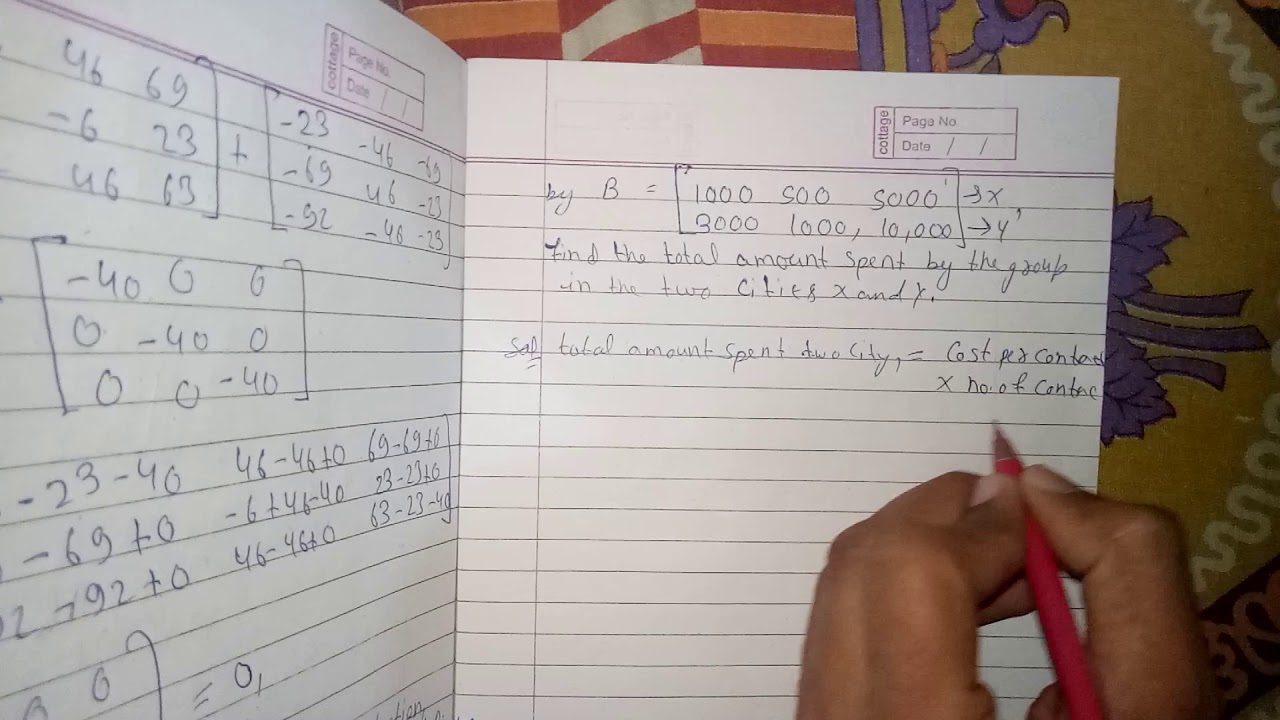 cottage
Page No.
Date / /
46 69
-6 23
46 63
+
-23 -46 -69
-69 46 -23
-92 -46 -23
-40 0 0
0 -40 0
0 0 -40
-23-40 46-46+0 69-69+0
-69+0 -6+46-40 23-23+0
+92+0 46-46+0 63-23-40
0
= 0,
cottage
Page No.
Date / /
by B = [1000 500 5000] → X
[3000 1000, 10,000] → Y
Find the total amount spent by the group
in the two cities X and Y.
Sol total amount spent two City, = Cost per contac
× no. of contac